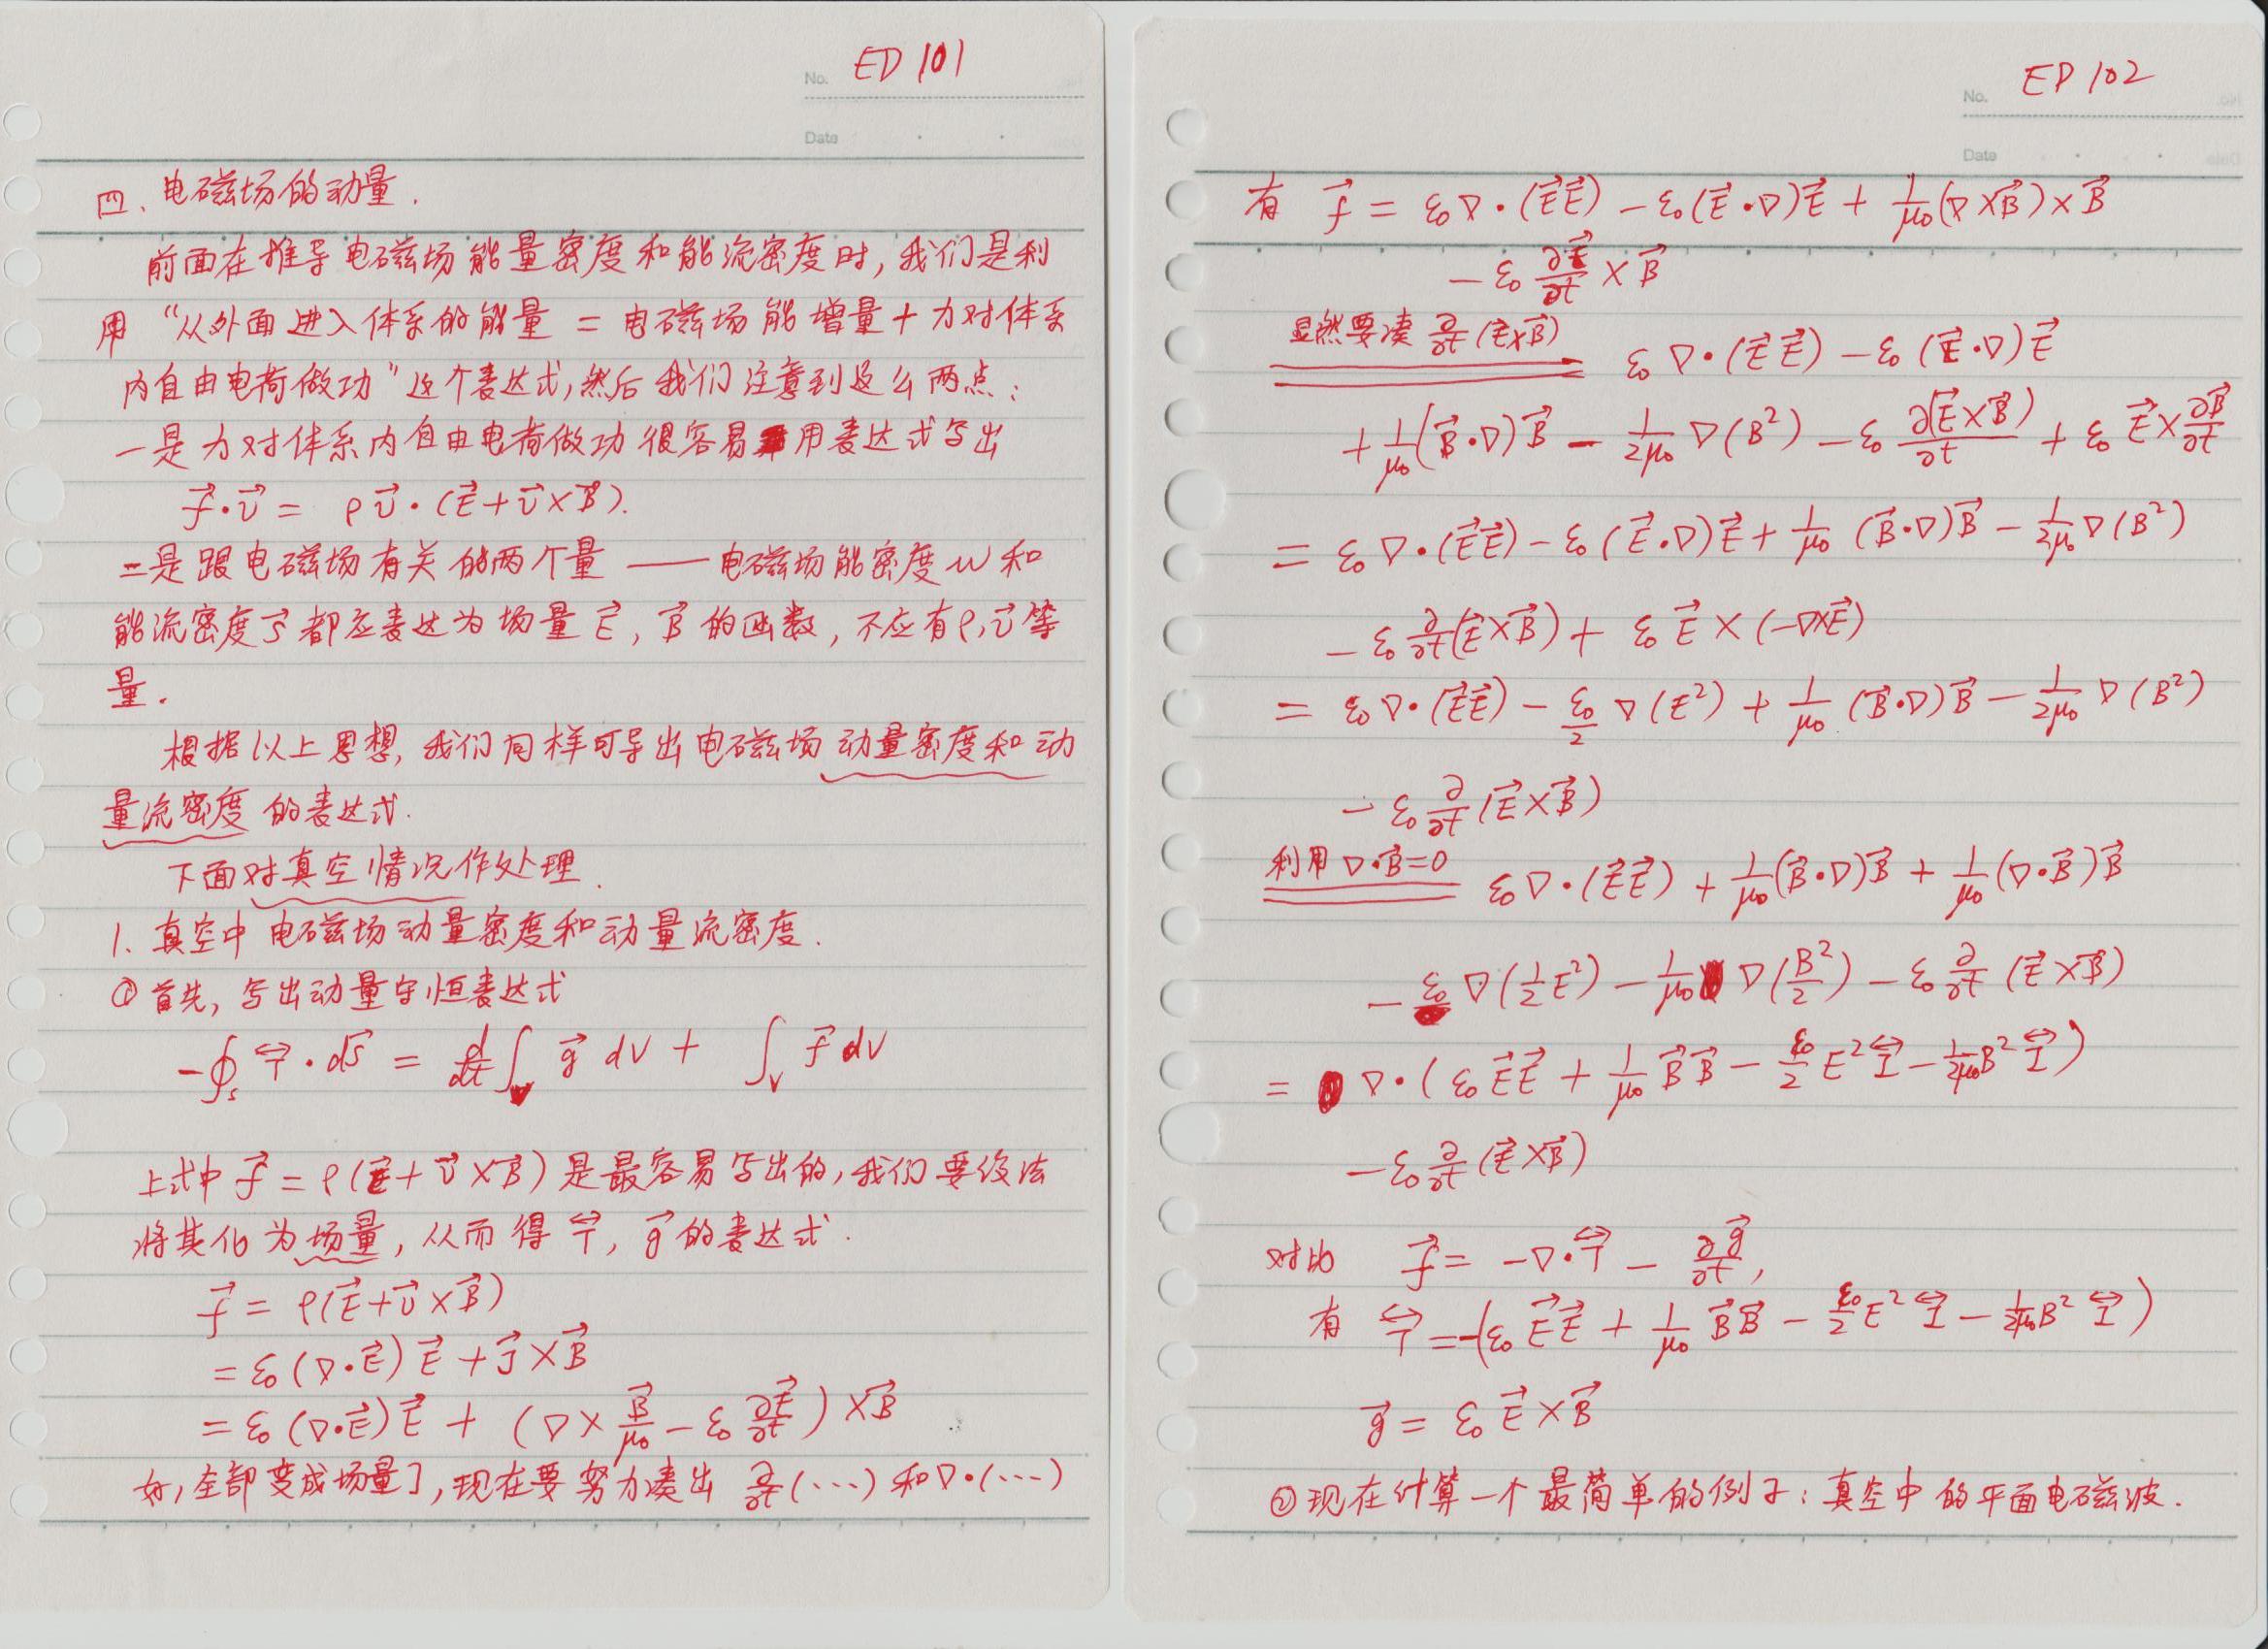 No. ED 101
Date
四、电磁场的动量.
前面在推导电磁场能量密度和能流密度时,我们是利
用“从外面进入体系的能量 = 电磁场能增量 + 力对体系
内自由电荷做功”这个表达式,然后我们注意到这么两点:
一是力对体系内自由电荷做功很容易用表达式写出
$\vec{f}\cdot\vec{v} = \rho\vec{v}\cdot(\vec{E}+\vec{v}\times\vec{B}).$
二是跟电磁场有关的两个量——电磁场能密度w和
能流密度$\vec{S}$都应表达为场量$\vec{E}$,$\vec{B}$的函数,不应有ρ,$\vec{v}$等
量.
根据以上思想,我们同样可导出电磁场动量密度和动
量流密度的表达式.
下面对真空情况作处理.
1. 真空中电磁场动量密度和动量流密度.
①首先,写出动量守恒表达式
$-\oint_S \overleftrightarrow{T}\cdot d\vec{S} = \frac{d}{dt}\int_V \vec{g}\,dV + \int_V \vec{f}\,dV$
上式中$\vec{f}=\rho(\vec{E}+\vec{v}\times\vec{B})$是最容易写出的,我们要设法
将其化为场量,从而得$\overleftrightarrow{T}$,$\vec{g}$的表达式.
$\vec{f} = \rho(\vec{E}+\vec{v}\times\vec{B})$
$= \varepsilon_0(\nabla\cdot\vec{E})\vec{E}+\vec{J}\times\vec{B}$
$= \varepsilon_0(\nabla\cdot\vec{E})\vec{E} + (\nabla\times\frac{\vec{B}}{\mu_0}-\varepsilon_0\frac{\partial\vec{E}}{\partial t})\times\vec{B}$
好,全部变成场量了,现在要努力凑出 $\frac{\partial}{\partial t}(\cdots)$ 和 $\nabla\cdot(\cdots)$
No. ED 102
Date
有 $\vec{f} = \varepsilon_0\nabla\cdot(\vec{E}\vec{E}) - \varepsilon_0(\vec{E}\cdot\nabla)\vec{E} + \frac{1}{\mu_0}(\nabla\times\vec{B})\times\vec{B}$
$-\varepsilon_0\frac{\partial\vec{E}}{\partial t}\times\vec{B}$
显然要凑 $\frac{\partial}{\partial t}(\vec{E}\times\vec{B})$ $\varepsilon_0\nabla\cdot(\vec{E}\vec{E}) - \varepsilon_0(\vec{E}\cdot\nabla)\vec{E}$
$+\frac{1}{\mu_0}(\vec{B}\cdot\nabla)\vec{B} - \frac{1}{2\mu_0}\nabla(B^2) - \varepsilon_0\frac{\partial(\vec{E}\times\vec{B})}{\partial t} + \varepsilon_0\vec{E}\times\frac{\partial\vec{B}}{\partial t}$
$= \varepsilon_0\nabla\cdot(\vec{E}\vec{E}) - \varepsilon_0(\vec{E}\cdot\nabla)\vec{E} + \frac{1}{\mu_0}(\vec{B}\cdot\nabla)\vec{B} - \frac{1}{2\mu_0}\nabla(B^2)$
$-\varepsilon_0\frac{\partial}{\partial t}(\vec{E}\times\vec{B}) + \varepsilon_0\vec{E}\times(-\nabla\times\vec{E})$
$= \varepsilon_0\nabla\cdot(\vec{E}\vec{E}) - \frac{\varepsilon_0}{2}\nabla(E^2) + \frac{1}{\mu_0}(\vec{B}\cdot\nabla)\vec{B} - \frac{1}{2\mu_0}\nabla(B^2)$
$-\varepsilon_0\frac{\partial}{\partial t}(\vec{E}\times\vec{B})$
利用 $\nabla\cdot\vec{B}=0$ $\varepsilon_0\nabla\cdot(\vec{E}\vec{E}) + \frac{1}{\mu_0}(\vec{B}\cdot\nabla)\vec{B} + \frac{1}{\mu_0}(\nabla\cdot\vec{B})\vec{B}$
$-\varepsilon_0\nabla(\frac{1}{2}E^2) - \frac{1}{\mu_0}\nabla(\frac{B^2}{2}) - \varepsilon_0\frac{\partial}{\partial t}(\vec{E}\times\vec{B})$
$= \nabla\cdot(\varepsilon_0\vec{E}\vec{E} + \frac{1}{\mu_0}\vec{B}\vec{B} - \frac{\varepsilon_0}{2}E^2\overleftrightarrow{I} - \frac{1}{2\mu_0}B^2\overleftrightarrow{I})$
$-\varepsilon_0\frac{\partial}{\partial t}(\vec{E}\times\vec{B})$
对比 $\vec{f} = -\nabla\cdot\overleftrightarrow{T} - \frac{\partial\vec{g}}{\partial t},$
有 $\overleftrightarrow{T} = -(\varepsilon_0\vec{E}\vec{E} + \frac{1}{\mu_0}\vec{B}\vec{B} - \frac{\varepsilon_0}{2}E^2\overleftrightarrow{I} - \frac{1}{2\mu_0}B^2\overleftrightarrow{I})$
$\vec{g} = \varepsilon_0\vec{E}\times\vec{B}$
②现在计算一个最简单的例子:真空中的平面电磁波.